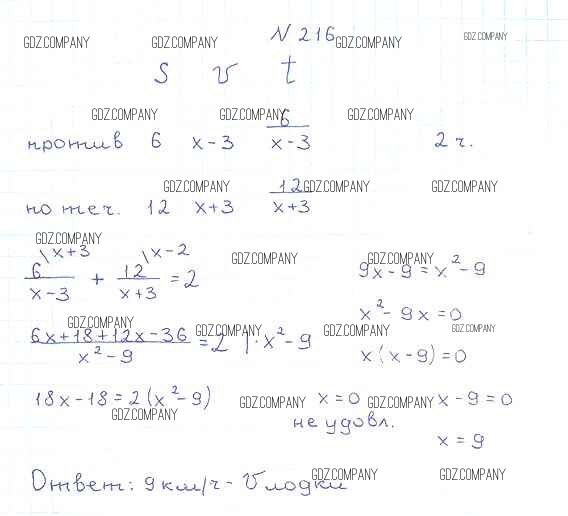 N 216
GDZ.COMPANY GDZ.COMPANY GDZ.COMPANY GDZ.COMPANY
s v t
GDZ.COMPANY GDZ.COMPANY GDZ.COMPANY
против 6 x-3 6/(x-3) 2 ч.
GDZ.COMPANY GDZ.COMPANY GDZ.COMPANY
по теч. 12 x+3 12/(x+3)
GDZ.COMPANY
\x+3 \x-2
GDZ.COMPANY GDZ.COMPANY
6/(x-3) + 12/(x+3) = 2
9x-9=x²-9
GDZ.COMPANY GDZ.COMPANY GDZ.COMPANY GDZ.COMPANY
(6x+18+12x-36)/(x²-9) = 2 |· x²-9
x²-9x=0
x(x-9)=0
18x-18=2(x²-9)
GDZ.COMPANY GDZ.COMPANY GDZ.COMPANY
x=0 x-9=0
не удовл.
x=9
GDZ.COMPANY GDZ.COMPANY
Ответ: 9 км/ч - V лодки